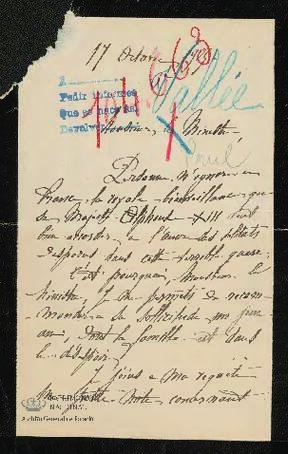 17 Octobre
104.663
2
Pedir informes
Que se haga
Devolver
Vallée
Monsieur le Ministre,
Paul
Personne n'ignore en
France la royale bienveillance que
Sa Majesté Alphonse XIII veut
bien accorder à l'œuvre des soldats
disparus dans cette terrible guerre.
C'est pourquoi, Monsieur le
Ministre, je me permets de recom-
mander à sa sollicitude un jeune
ami, dont la famille est dans
le désespoir.
Je joins à ma requête
une petite note concernant
PATRIMONIO
NACIONAL
Archivo General de Palacio